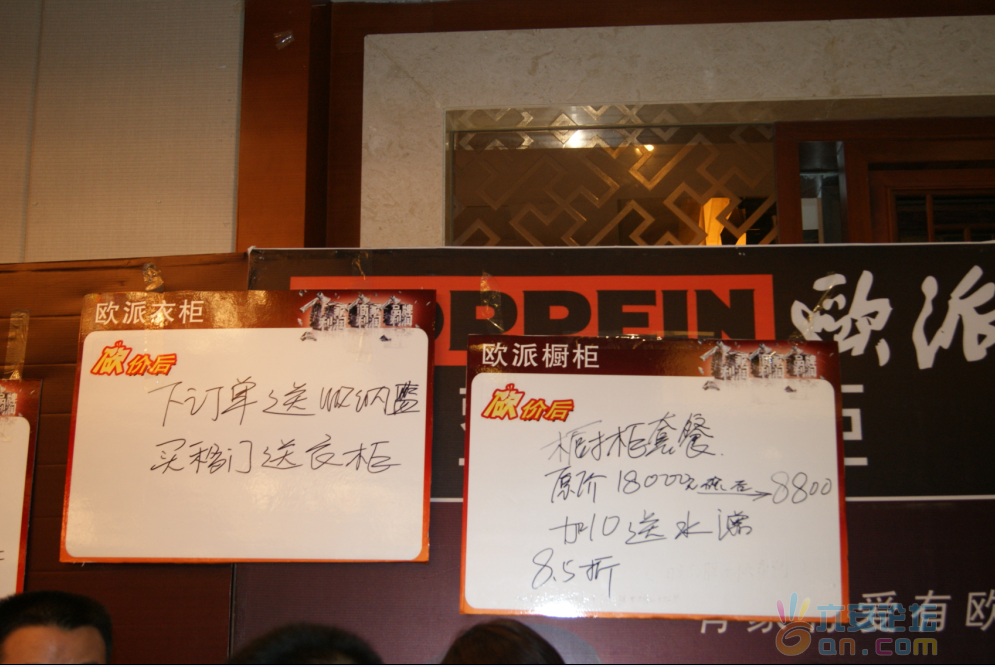 OPPEIN 欧派
欧派衣柜
砍价后
下订单送收纳篮
买移门送衣柜
欧派橱柜
砍价后
橱柜套餐
原价18000元砍后→8800
加10送水槽
8.5折
有家 有爱有欧
六安论坛
an.com